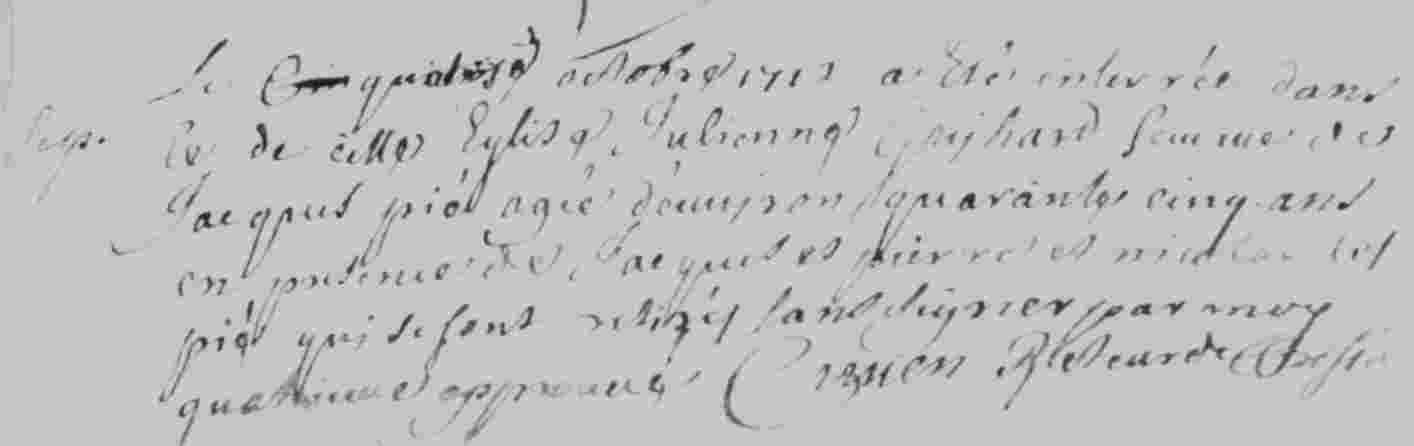 Le quatorse octobre 171 a été enterrée dans
Sep. de cette Eglise Julienne Guihard femme de
Jacques pié agée d'enuiron quarante cinq ans
en presence de Jacques et pierre et nicolas les
pié qui se sont retirés sans signer par moy
quatrieme approuué Recteur de